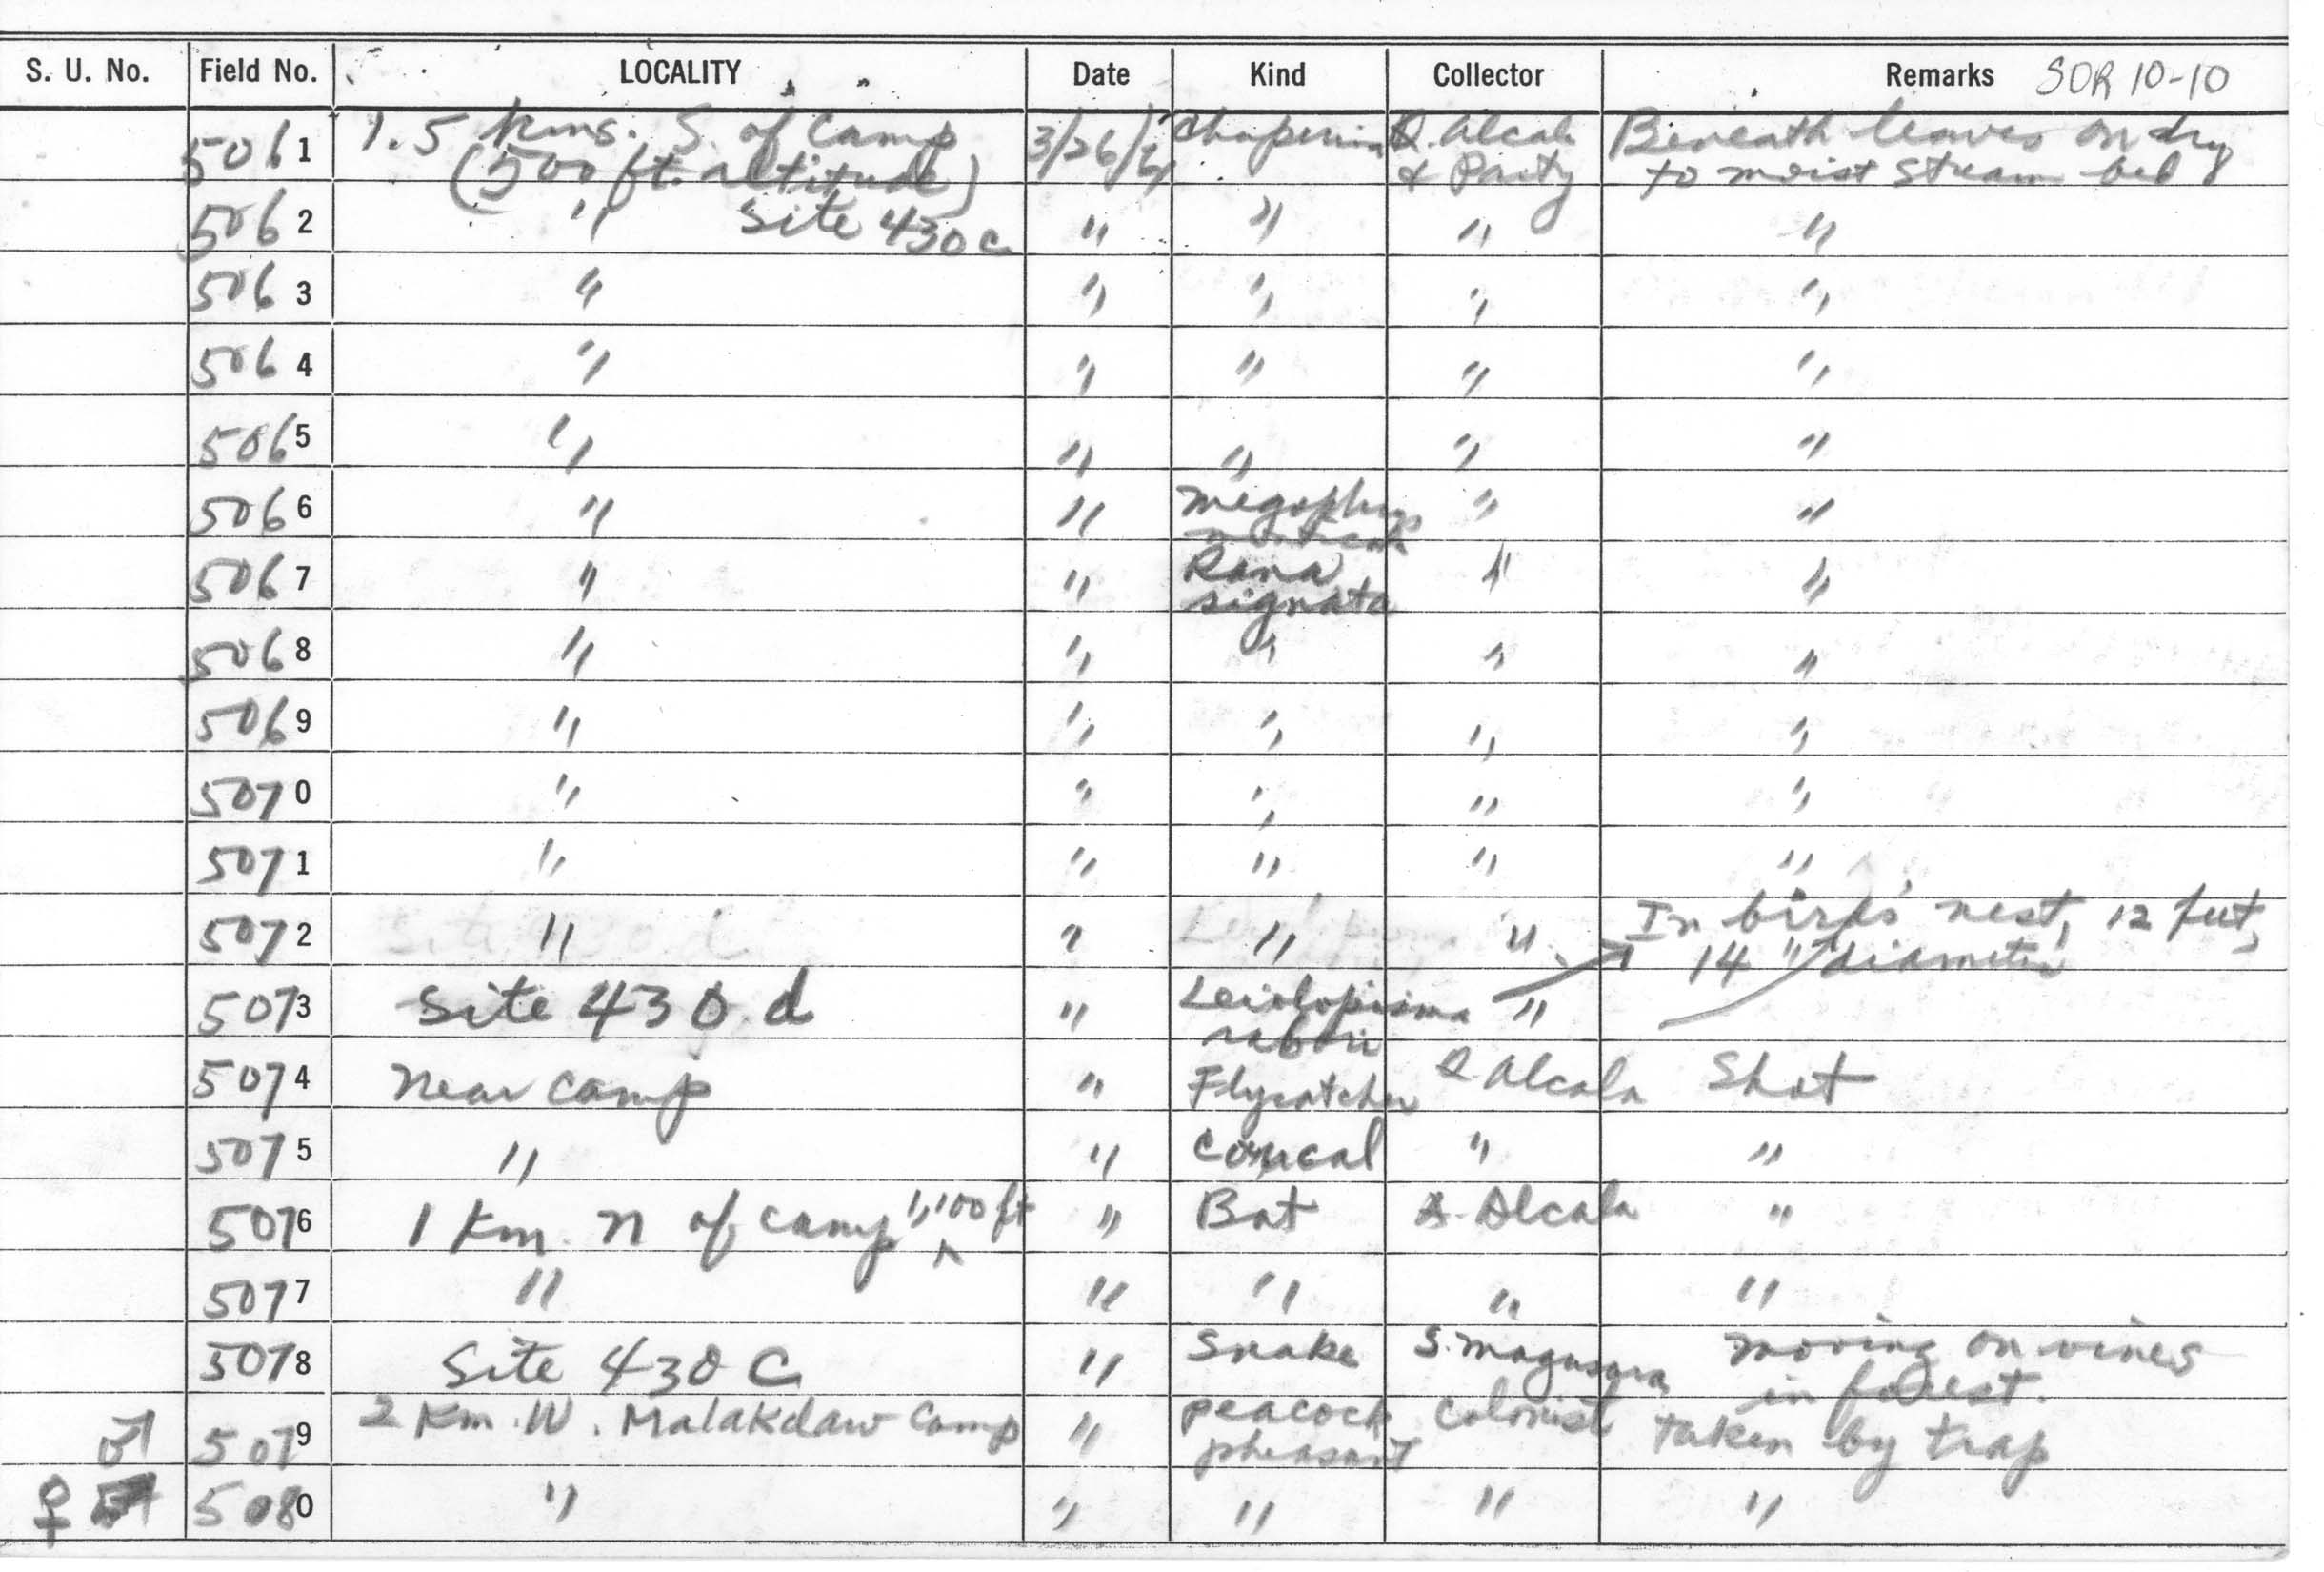 S. U. No. Field No. LOCALITY Date Kind Collector Remarks SOR 10-10
5061 1.5 kms. S. of Camp 3/26/61 Chaperina Q. Alcala Beneath leaves on dry
(500 ft. altitude) & Party to moist stream bed
5062 " Site 430c " " " "
5063 " " " " "
5064 " " " " "
5065 " " " " "
5066 " " Megophrys " "
monticola
5067 " " Rana " "
signata
5068 " " " " "
5069 " " " " "
5070 " " " " "
5071 " " " " "
5072 " " " " In bird's nest, 12 feet,
14" diameter
5073 Site 430 d " Leiolopisma "
rabori
5074 Near camp " Flycatcher Q Alcala Shot
5075 " " Coucal " "
5076 1 Km. N of camp 1,100 ft " Bat A. Alcala "
5077 " " " " "
5078 Site 430 C " Snake S. Magusara moving on vines
in forest.
♂ 5079 2 Km. W. Malakdaw Camp " peacock Colonist taken by trap
pheasant
♀ 5080 " " " " "